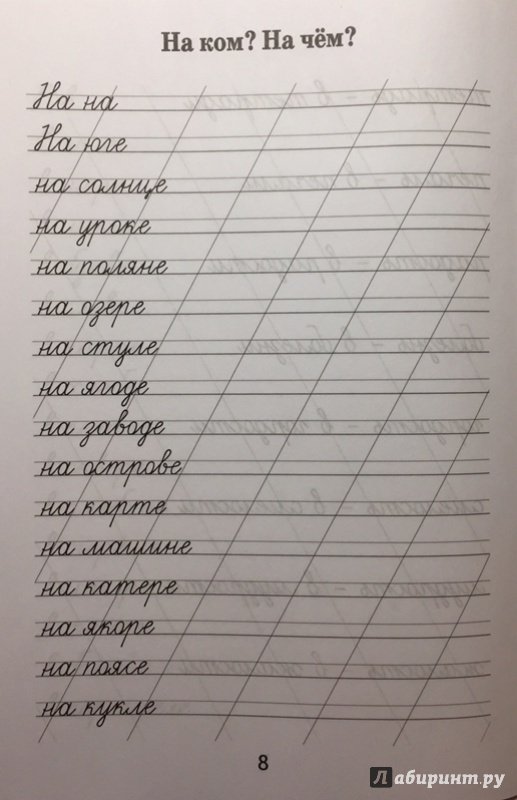 На ком? На чём?
На на
На юге
на солнце
на уроке
на поляне
на озере
на стуле
на ягоде
на заводе
на острове
на карте
на машине
на катере
на якоре
на поясе
на кукле
8
Лабиринт.ру